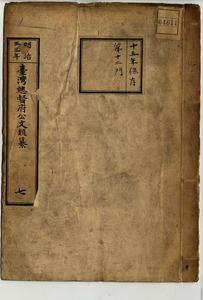 明治
三三年
臺灣總督府公文類纂
七
十五年保存
第十二門